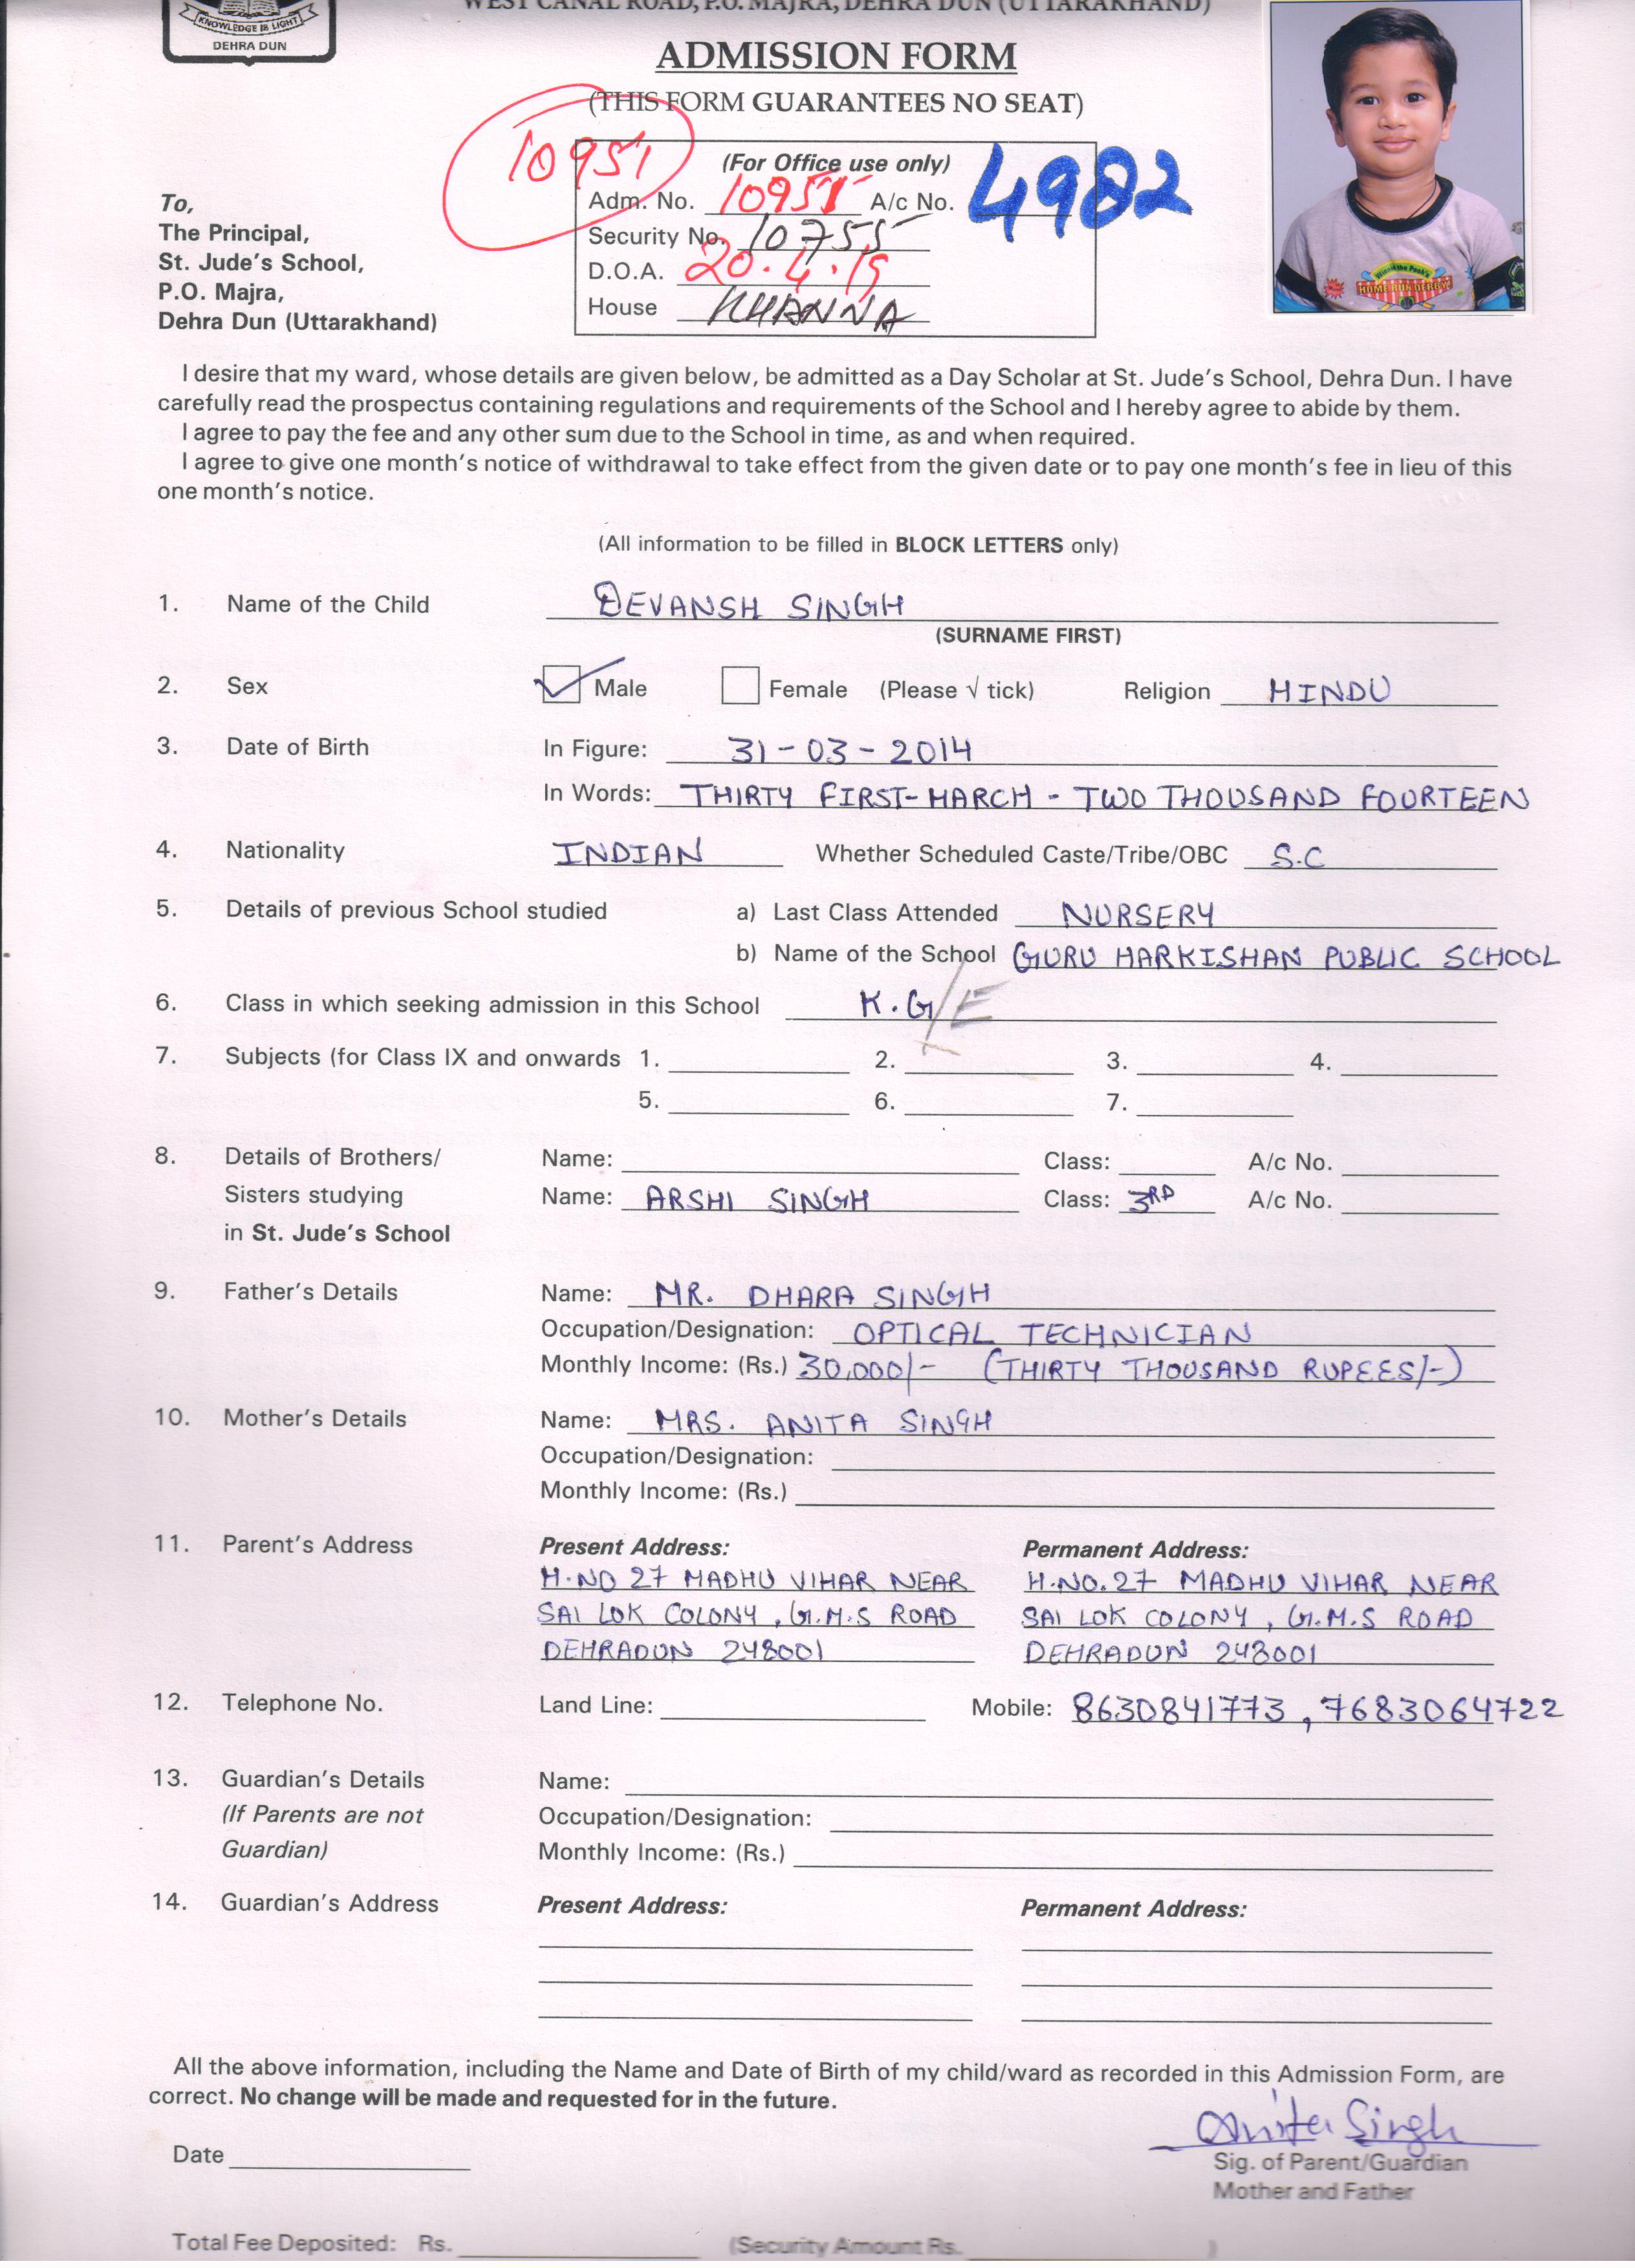 WEST CANAL ROAD, P.O. MAJRA, DEHRA DUN (UTTARAKHAND)
KNOWLEDGE IS LIGHT
DEHRA DUN
ADMISSION FORM
(THIS FORM GUARANTEES NO SEAT)
10951
(For Office use only)
Adm. No. 10951 A/c No. 4982
Security No. 10755
D.O.A. 20.4.19
House KHANNA
To,
The Principal,
St. Jude's School,
P.O. Majra,
Dehra Dun (Uttarakhand)
I desire that my ward, whose details are given below, be admitted as a Day Scholar at St. Jude's School, Dehra Dun. I have
carefully read the prospectus containing regulations and requirements of the School and I hereby agree to abide by them.
I agree to pay the fee and any other sum due to the School in time, as and when required.
I agree to give one month's notice of withdrawal to take effect from the given date or to pay one month's fee in lieu of this
one month's notice.
(All information to be filled in BLOCK LETTERS only)
1. Name of the Child DEVANSH SINGH
(SURNAME FIRST)
2. Sex Male Female (Please √ tick) Religion HINDU
3. Date of Birth In Figure: 31-03-2014
In Words: THIRTY FIRST-MARCH - TWO THOUSAND FOURTEEN
4. Nationality INDIAN Whether Scheduled Caste/Tribe/OBC S.C
5. Details of previous School studied a) Last Class Attended NURSERY
b) Name of the School GURU HARKISHAN PUBLIC SCHOOL
6. Class in which seeking admission in this School K.G/E
7. Subjects (for Class IX and onwards 1. 2. 3. 4.
5. 6. 7.
8. Details of Brothers/ Name: Class: A/c No.
Sisters studying Name: ARSHI SINGH Class: 3RD A/c No.
in St. Jude's School
9. Father's Details Name: MR. DHARA SINGH
Occupation/Designation: OPTICAL TECHNICIAN
Monthly Income: (Rs.) 30,000/- (THIRTY THOUSAND RUPEES/-)
10. Mother's Details Name: MRS. ANITA SINGH
Occupation/Designation:
Monthly Income: (Rs.)
11. Parent's Address Present Address: Permanent Address:
H.NO 27 MADHU VIHAR NEAR H.NO.27 MADHU VIHAR NEAR
SAI LOK COLONY, G.M.S ROAD SAI LOK COLONY, G.M.S ROAD
DEHRADUN 248001 DEHRADUN 248001
12. Telephone No. Land Line: Mobile: 8630841773, 7683064722
13. Guardian's Details Name:
(If Parents are not Occupation/Designation:
Guardian) Monthly Income: (Rs.)
14. Guardian's Address Present Address: Permanent Address:
All the above information, including the Name and Date of Birth of my child/ward as recorded in this Admission Form, are
correct. No change will be made and requested for in the future.
Anita Singh
Date Sig. of Parent/Guardian
Mother and Father
Total Fee Deposited: Rs. (Security Amount Rs. )